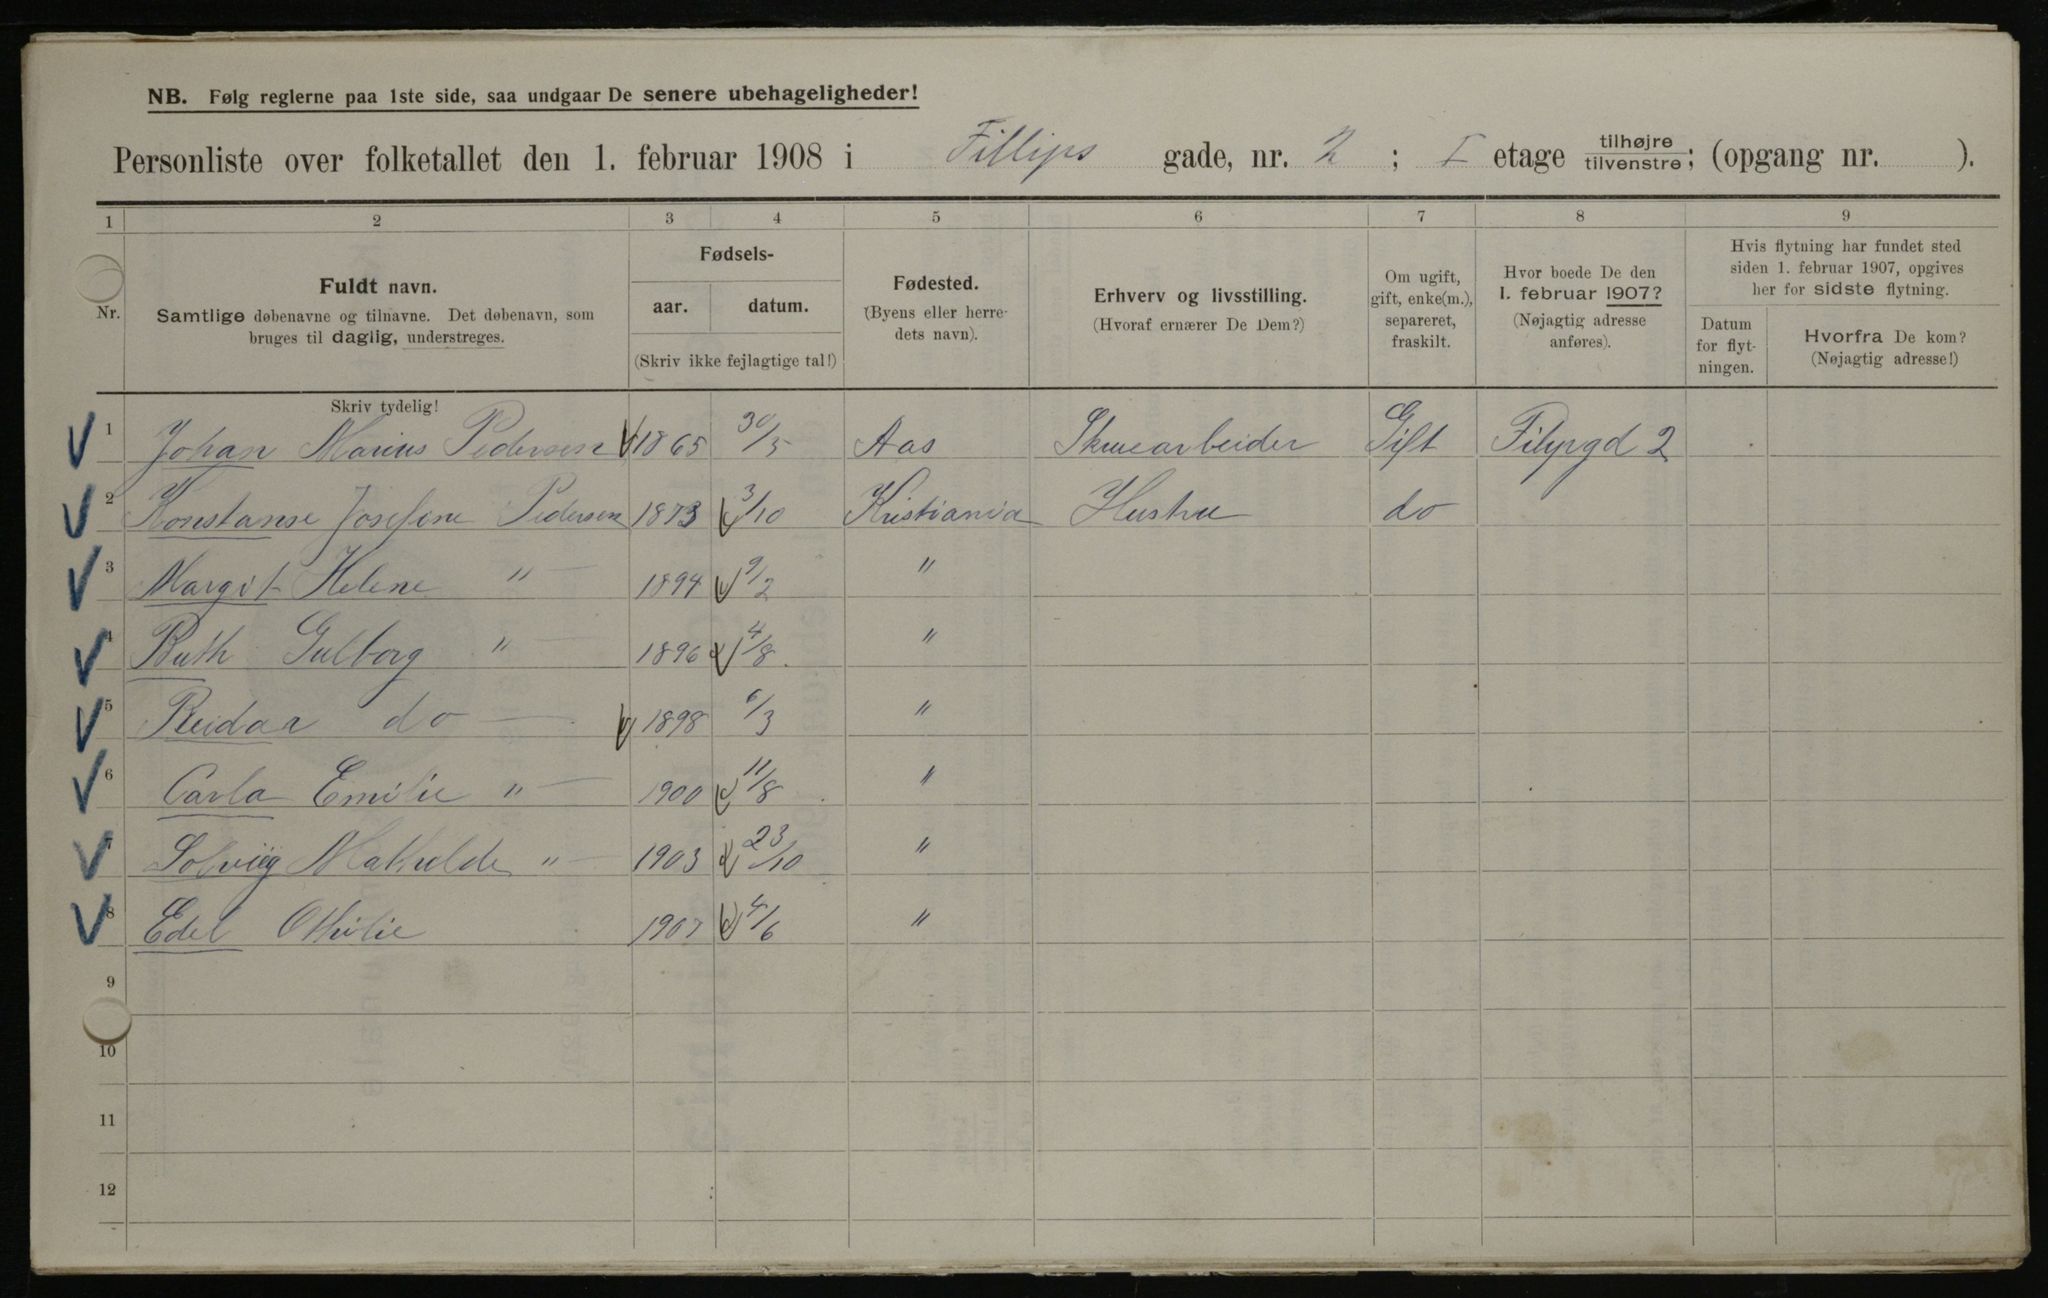 NB. Følg reglerne paa 1ste side, saa undgaar De senere ubehageligheder!
Personliste over folketallet den 1. februar 1908 i Fillips gade, nr. 2 ; I etage tilhøjre/tilvenstre; (opgang nr. ).
1 2 3 4 5 6 7 8 9
Nr. Fuldt navn. Samtlige døbenavne og tilnavne. Det døbenavn, som bruges til daglig, understreges.
Fødsels- aar. datum. (Skriv ikke fejlagtige tal!)
Fødested. (Byens eller herredets navn).
Erhverv og livsstilling. (Hvoraf ernærer De Dem?)
Om ugift, gift, enke(m.), separeret, fraskilt.
Hvor boede De den 1. februar 1907? (Nøjagtig adresse anføres).
Hvis flytning har fundet sted siden 1. februar 1907, opgives her for sidste flytning.
Datum for flytningen.
Hvorfra De kom? (Nøjagtig adresse!)
Skriv tydelig!
1 Johan Marius Pedersen 1865 30/5 Aas Skruearbeider Gift Filipgd 2
2 Konstanse Josefine Pedersen 1873 3/10 Kristiania Hustru do
3 Margit Helene " 1894 9/2 "
4 Ruth Gulborg " 1896 4/8 "
5 Reidar do 1898 6/3 "
6 Carla Emilie " 1900 11/8 "
7 Solveig Mathilde " 1903 23/10 "
8 Edel Othilie 1907 4/6 "
9
10
11
12